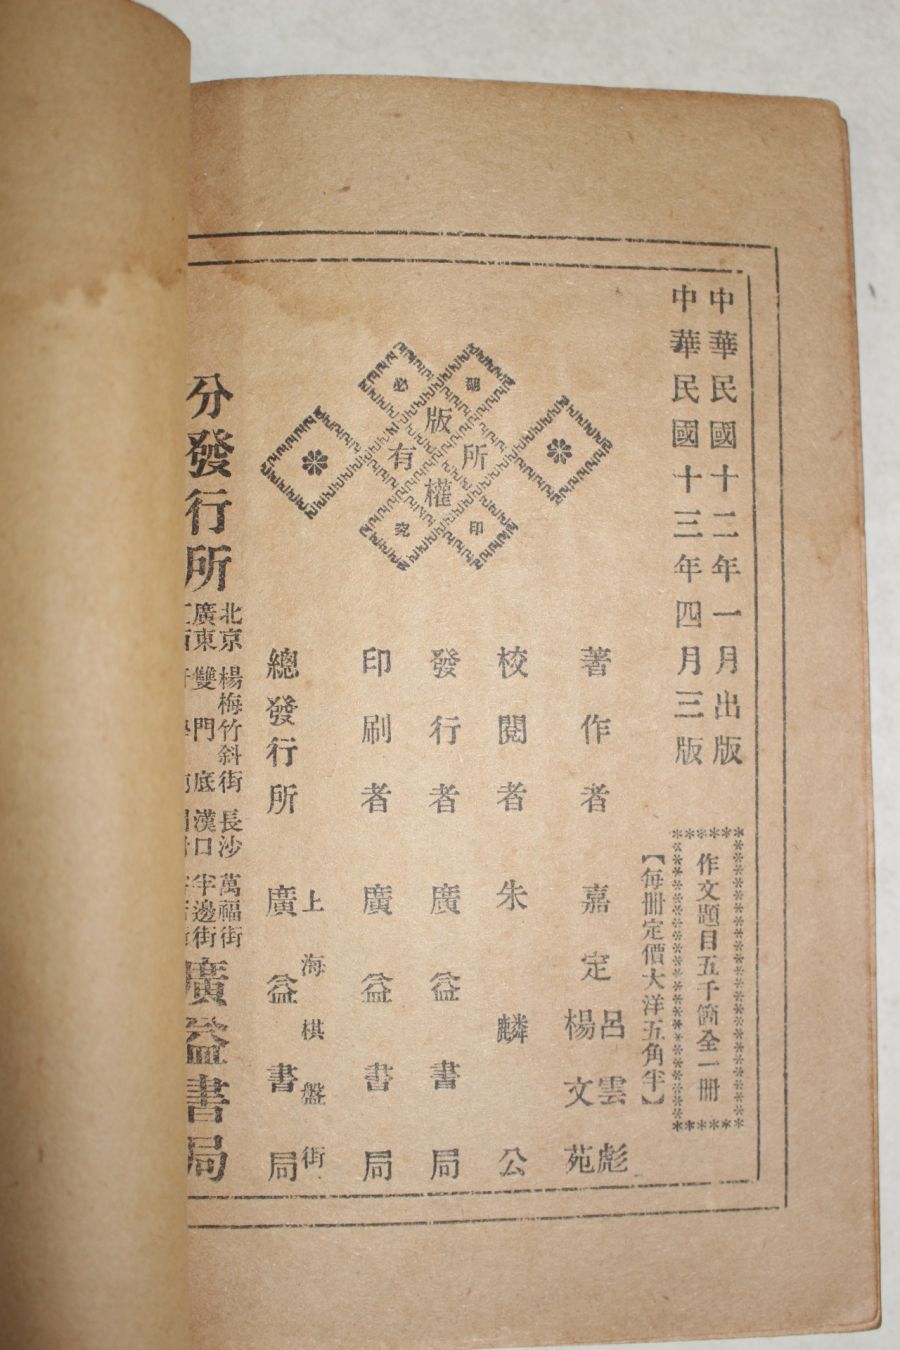 中華民國十二年一月出版
中華民國十三年四月三版
作文題目五千箇全一冊
【每冊定價大洋五角半】
版權所有
翻印必究
著作者 嘉定 呂雲彪 楊文苑
校閱者 朱麟公
發行者 廣益書局
印刷者 廣益書局
總發行所 上海棋盤街 廣益書局
分發行所
北京 楊梅竹斜街 長沙 萬福街
廣東 雙門底 漢口 半邊街
廣益書局